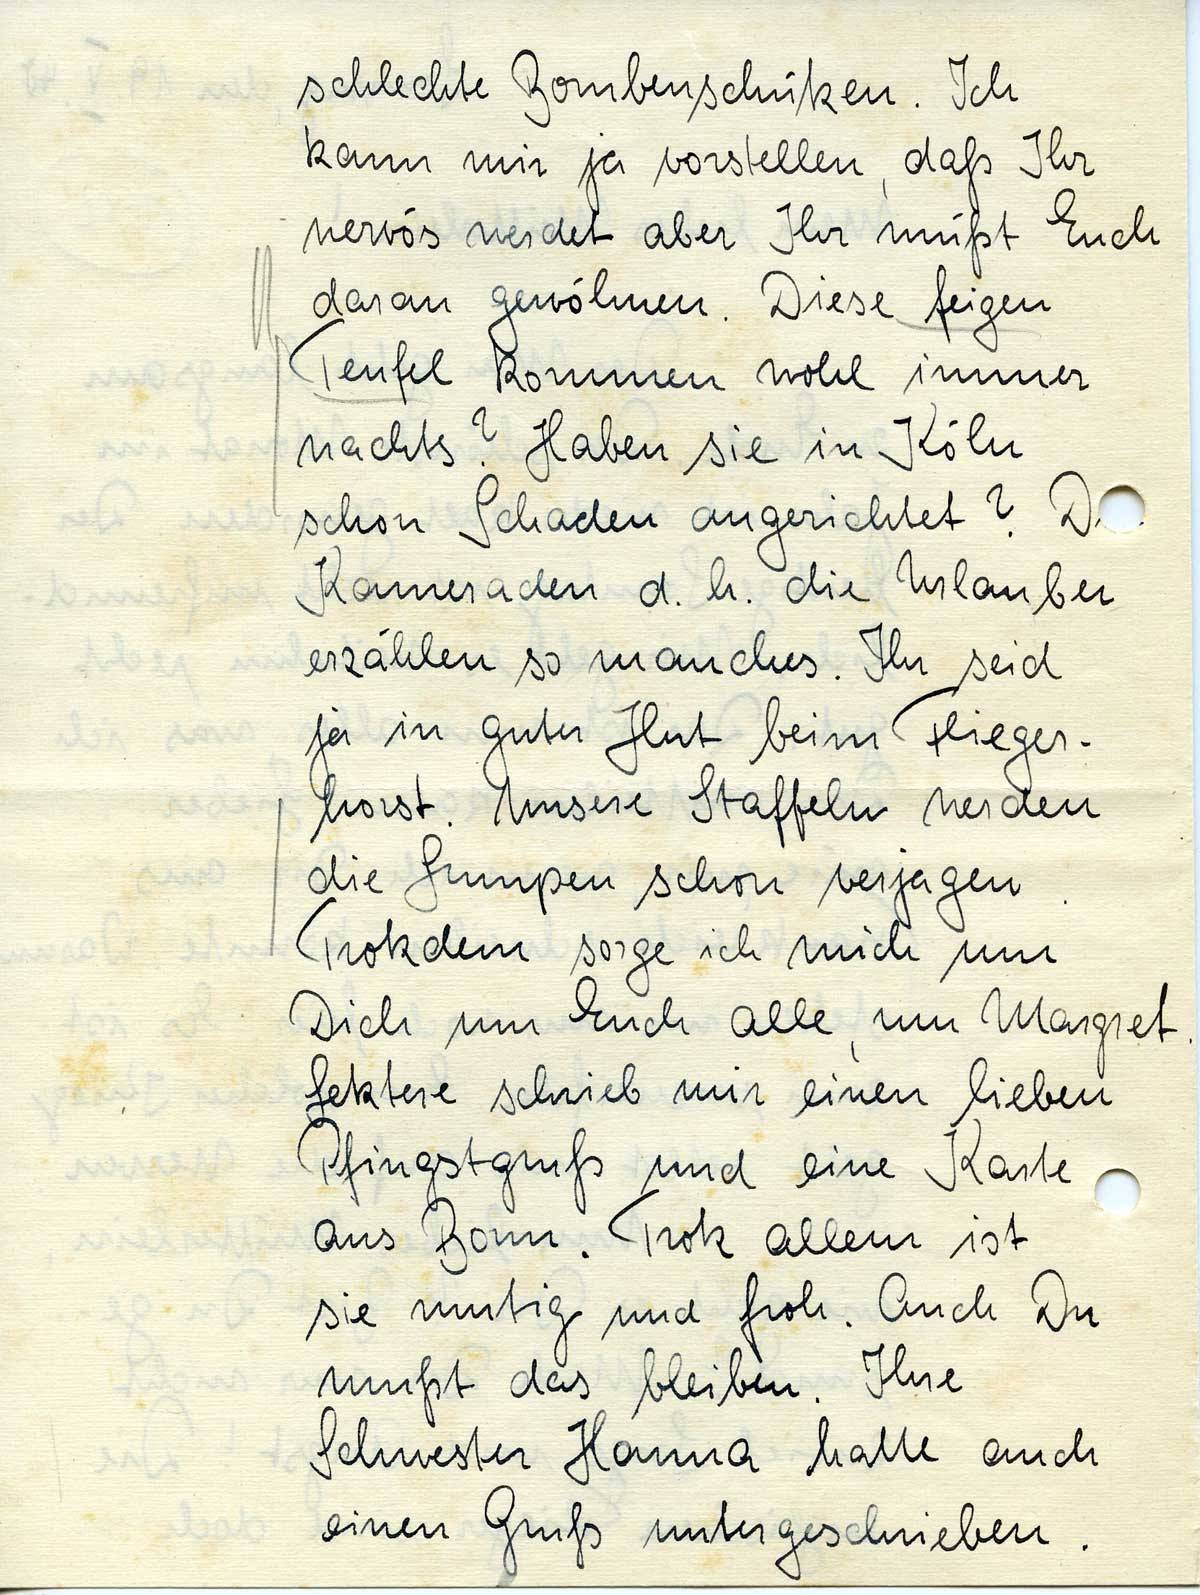 schlechte Bombenschüken. Ich
kann mir ja vorstellen, daß Ihr
nervös werdet aber Ihr müßt Euch
daran gewöhnen. Diese feigen
Teufel kommen wohl immer
nachts? Haben sie in Köln
schon Schaden angerichtet? D
Kameraden d. h. die Urlauber
erzählen so manches. Ihr seid
ja in guter Hut beim Flieger-
horst. Unsere Staffeln werden
die Lumpen schon verjagen.
Trokdem sorge ich mich um
Dich um Euch alle, um Margret.
Lektere schrieb mir einen lieben
Pfingstgruß und eine Karte
aus Bonn. Trok allem ist
sie mutig und froh. Auch Du
mußt das bleiben. Ihre
Schwester Hanna hatte auch
einen Gruß untergeschrieben.